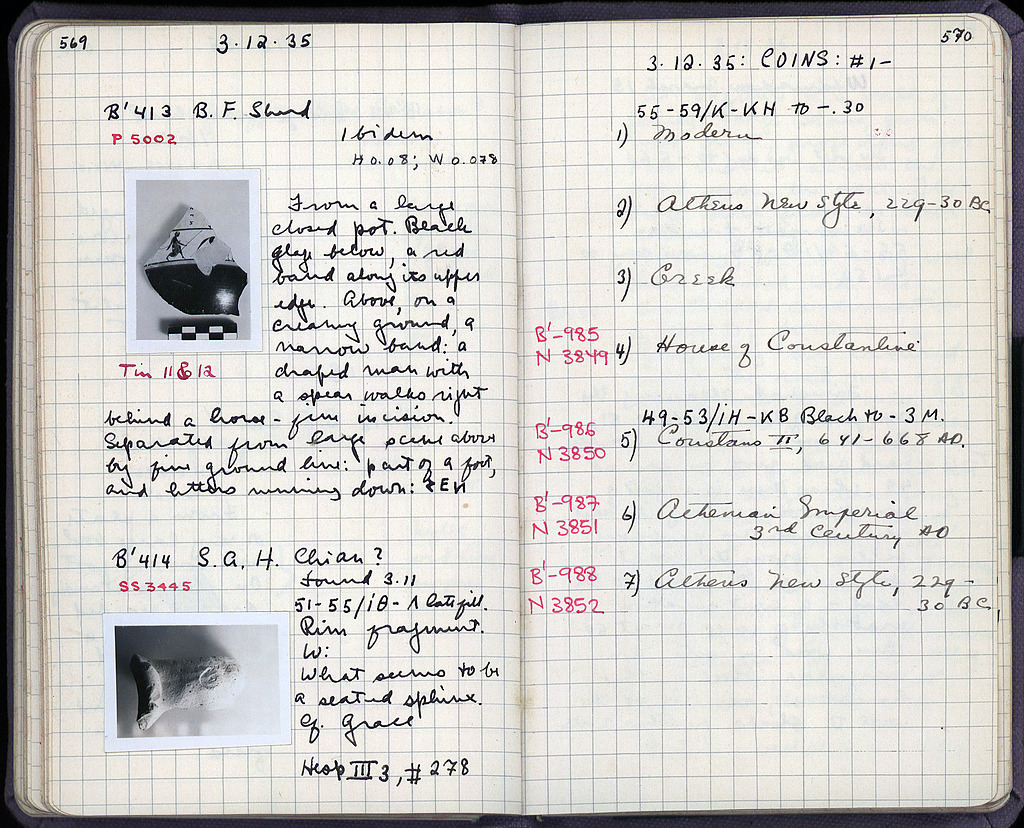 569
3·12·35
B'413 B. F. Sherd
P 5002
Ibidem
H 0.08; W 0.078
From a large
closed pot. Black
glaze below, a red
band along its upper
edge. Above, on a
creamy ground, a
narrow band: a
draped man with
a spear walks right
behind a horse - fine incision.
Separated from large scene above
by fine ground line: part of a foot,
and letters running down:
Tin 11 & 12
B'414 S. A. H. Chian?
SS 3445
Found 3.11
51-55/ΙΘ-Λ late fill.
Rim fragment.
W:
What seems to be
a seated sphinx.
Cf. Grace
Hesp III 3, # 278
570
3·12·35: COINS: #1-
55-59/K-KH to -.30
1) Modern
2) Athens New Style, 229-30 BC
3) Greek
B'-985
N 3849
4) House of Constantine
49-53/ΙΗ-ΚΒ Black to -3 M.
B'-986
N 3850
5) Constans II, 641-668 AD.
B'-987
N 3851
6) Athenian Imperial
3rd Century AD
B'-988
N 3852
7) Athens New Style, 229-
30 BC